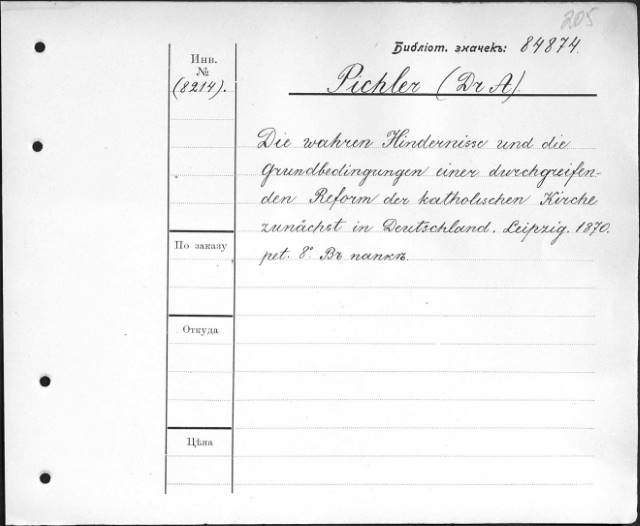 205
Библіот. значекъ: 84874.
Инв.
№
(8214).
Pichler (Dr A).
Die wahren Hindernisse und die
Grundbedingungen einer durchgreifen-
den Reform der katholischen Kirche
zunächst in Deutschland. Leipzig. 1870.
pet. 8°. Въ папкѣ.
По заказу
Откуда
Цѣна